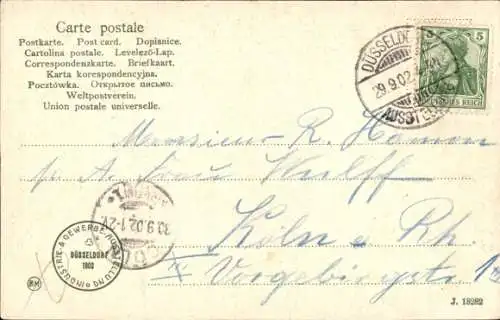 Carte postale
Postkarte. Post card. Dopisnice.
Cartolina postale. Levelező-Lap.
Correspondenzkarte. Briefkaart.
Karta korespondencyjna.
Pocztówka. Открытое письмо.
Weltpostverein.
Union postale universelle.
5
DEUTSCHES REICH
DÜSSELDORF
29.9.02
AUSSTELLUNG
Monsieur R. Hamon
p. A. Frau Wulff
Köln a Rh.
Vorgebirgstr 13
30.9.02.1-2V.
INDUSTRIE & GEWERBE-AUSSTELLUNG
DÜSSELDORF
1902
J. 18282